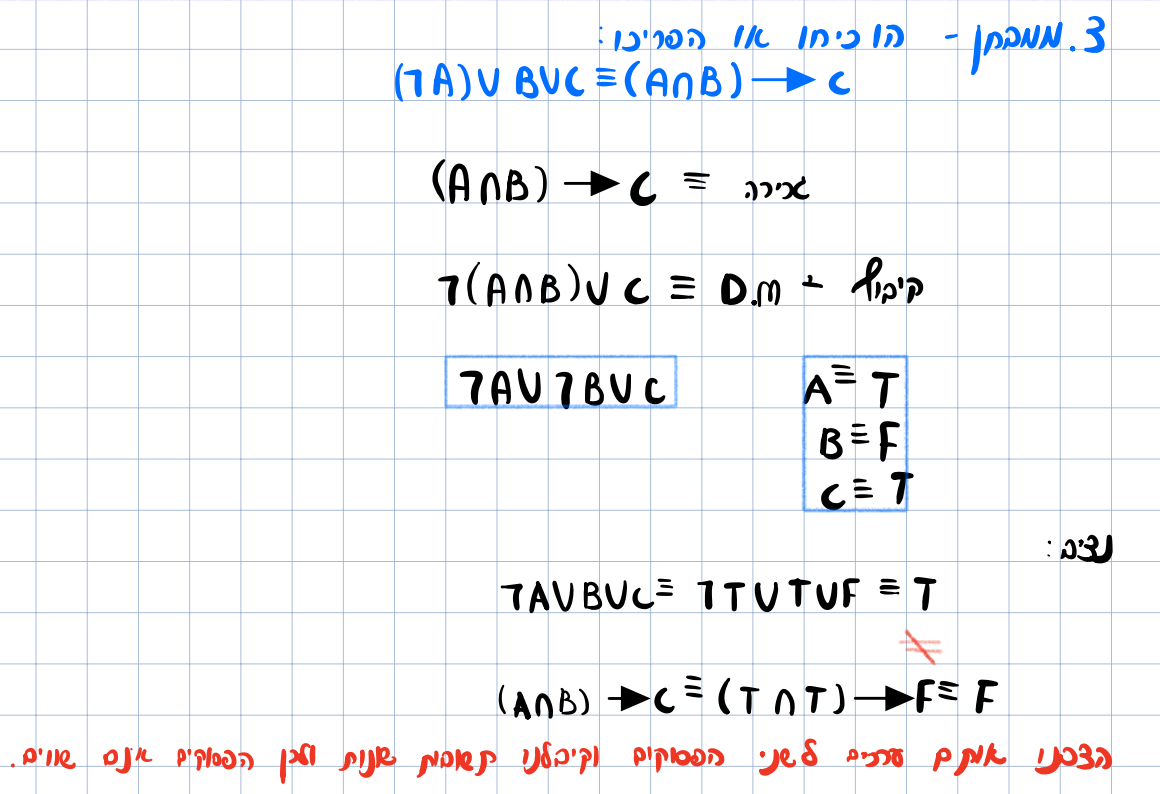 3. ממבחן - הוכיחו או הפריכו:
(¬A)∪B∪C ≡ (A∩B) → C
(A∩B) → C ≡ גרירה
¬(A∩B)∪C ≡ D.M + קיבוץ
¬A∪¬B∪C
A ≡ T
B ≡ F
C ≡ T
נציב:
¬A∪B∪C ≡ ¬T∪T∪F ≡ T
≢
(A∩B) → C ≡ (T∩T) → F ≡ F
הצבנו אותם ערכים לשני הפסוקים וקיבלנו תשובות שונות ולכן הפסוקים אינם שווים.